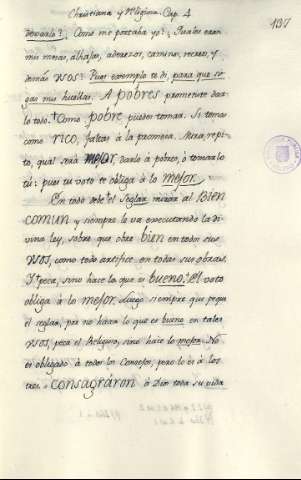 Christiana y Religiosa. Cap. 4
137
devorarlo? Como me portaria yo? Quales eran
mis mesas, alhajas, aderezos, camino, recreo, y
demás usos? Pues exemplo te di, para que si-
gas mis huellas. A pobres prometiste dar-
lo todo. Como pobre puedes tomar. Si tomas
como rico, faltas à la promesa. Mira, repi-
to, qual será mejor, darlo à pobres, ò tomarlo
tù: pues tu voto te obliga à lo mejor.
En todo debe el Seglar mirar al Bien
comun y siempre le va executando la di-
vina ley, sobre que obre bien en todos sus
usos, como todo artifice en todas sus obras.
Y peca, sino hace lo que es bueno. El voto
obliga à lo mejor. Luego siempre que peque
el seglar, por no hacer lo que es bueno en tales
usos, peca el Religioso, sino hace lo mejor. No
es obligado à todos los Consejos, pero lo es à los
tres. Consagráron à Dios toda su vida